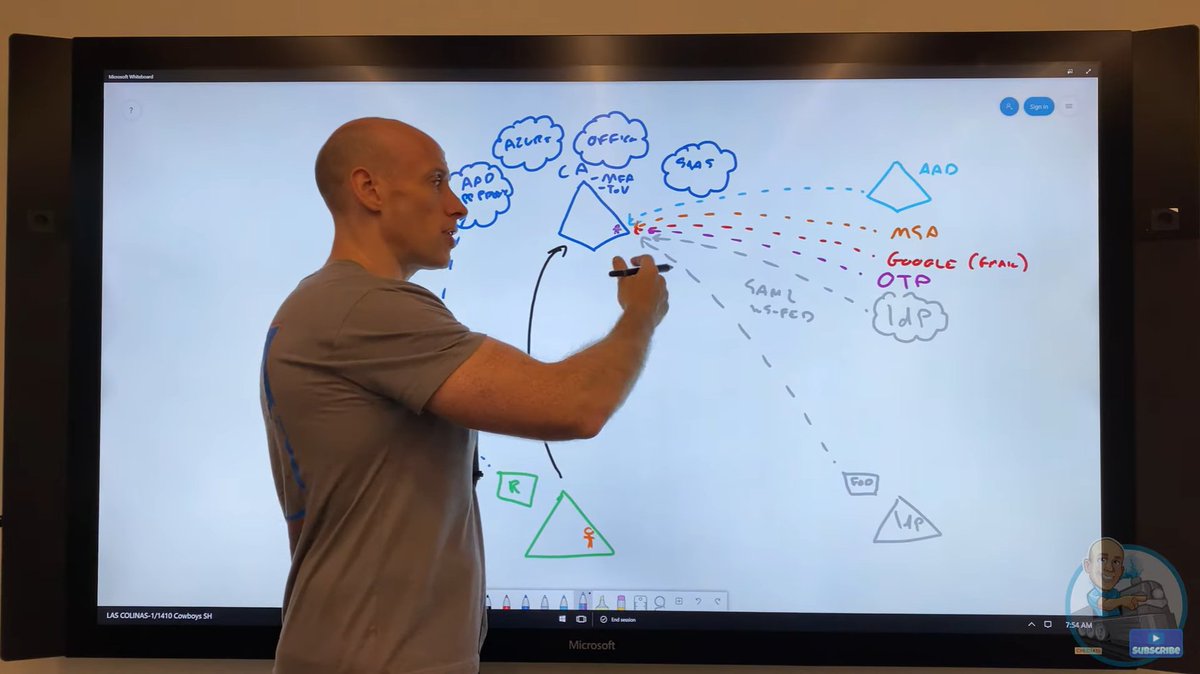 Microsoft Whiteboard
?
Sign in
AZURE
OFFICE
SAAS
CA
-MFA
-ToU
AAD
AAD
MSA
GOOGLE (GMAIL)
OTP
IdP
SAML
WS-FED
R
FED
IdP
LAS COLINAS-1/1410 Cowboys SH
End session
7:54 AM
Microsoft
SUBSCRIBE